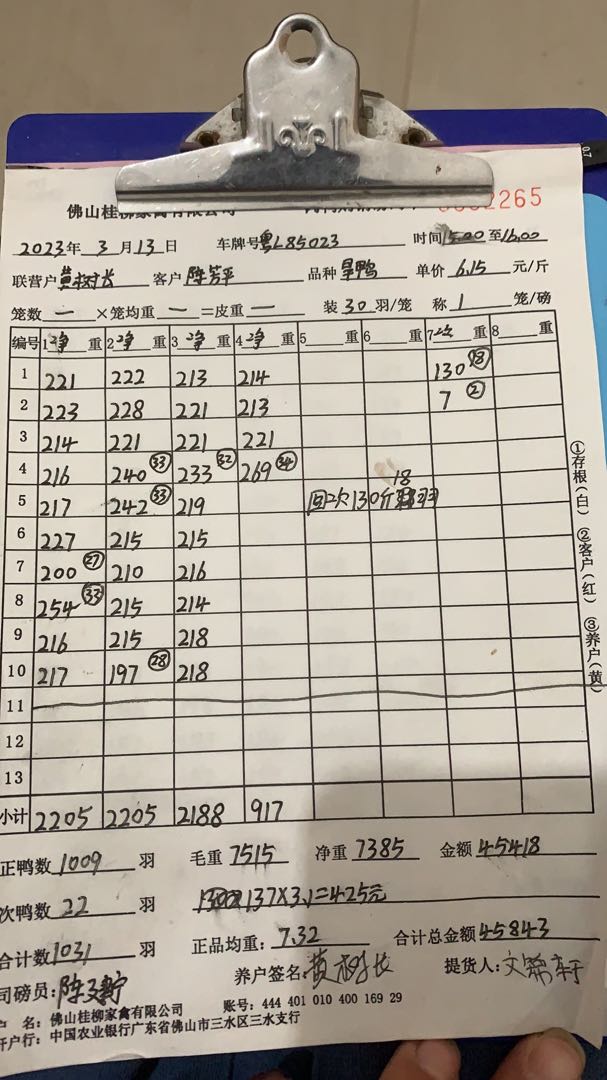 佛山桂柳家禽有限公司 2265
2023年 3月13日 车牌号 粤L85023 时间 15:00 至 16:00
联营户 黄树长 客户 陈芳平 品种 旱鸭 单价 6.15 元/斤
笼数 一 ×笼均重 一 =皮重 一 装 30 羽/笼 称 1 笼/磅
编号 1净重 2净重 3净重 4净重 5 重 6 重 7次重 8 重
1 221 222 213 214 130 ⑱
2 223 228 221 213 7 ②
3 214 221 221 221
4 216 240 ㉝ 233 ㉜ 269 ㉞ 18
5 217 242 ㉝ 219 回次130斤 羽
6 227 215 215
7 200 ㉗ 210 216
8 254 ㉝ 215 214
9 216 215 218
10 217 197 ㉘ 218
11
12
13
小计 2205 2205 2188 917
正鸭数 1009 羽 毛重 7515 净重 7385 金额 45418
次鸭数 22 羽 137×3.1=425元
合计数 1031 羽 正品均重: 7.32 合计总金额 45843
司磅员: 养户签名: 黄树长 提货人:
户 名: 佛山桂柳家禽有限公司 账号: 444 401 010 400 169 29
开户行: 中国农业银行广东省佛山市三水区三水支行
①存根(白) ②客户(红) ③养户(黄)